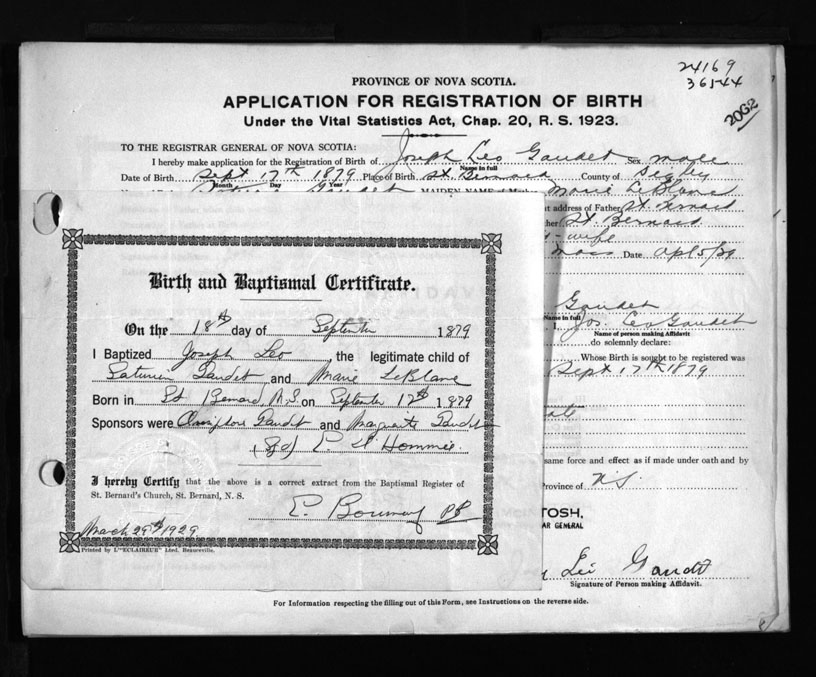 24169
36544
2062
PROVINCE OF NOVA SCOTIA.
APPLICATION FOR REGISTRATION OF BIRTH
Under the Vital Statistics Act, Chap. 20, R. S. 1923.
TO THE REGISTRAR GENERAL OF NOVA SCOTIA:
I hereby make application for the Registration of Birth of Joseph Leo Gaudet Sex male
Name in full
Date of Birth Sept 17th 1879 Place of Birth St Bernard County of Digby
Month Day Year
Gaudet MAIDEN NAME of Marie LeBlanc
address of Father St. Bernard
St Bernard
wife
Mass Date
Birth and Baptismal Certificate.
On the 18th day of September 1879
I Baptized Joseph Leo, the legitimate child of
Gaudet and Marie LeBlanc
Born in St Bernard, N.S. on September 17th 1879
Sponsors were Gaudet and Marguerite Gaudet
(Sgd)
I hereby Certify that the above is a correct extract from the Baptismal Register of
St. Bernard's Church, St. Bernard, N. S.
March 29th 1929
Printed by L'"ECLAIREUR" Lted. Beauceville.
Gaudet
Name in full
I, Jos. Leo Gaudet
Name of person making Affidavit
do solemnly declare:
Whose Birth is sought to be registered was
Sept 17th 1879
same force and effect as if made under oath and by
Province of N.S.
TOSH,
AR GENERAL
Gaudet
Signature of Person making Affidavit.
For Information respecting the filling out of this Form, see Instructions on the reverse side.